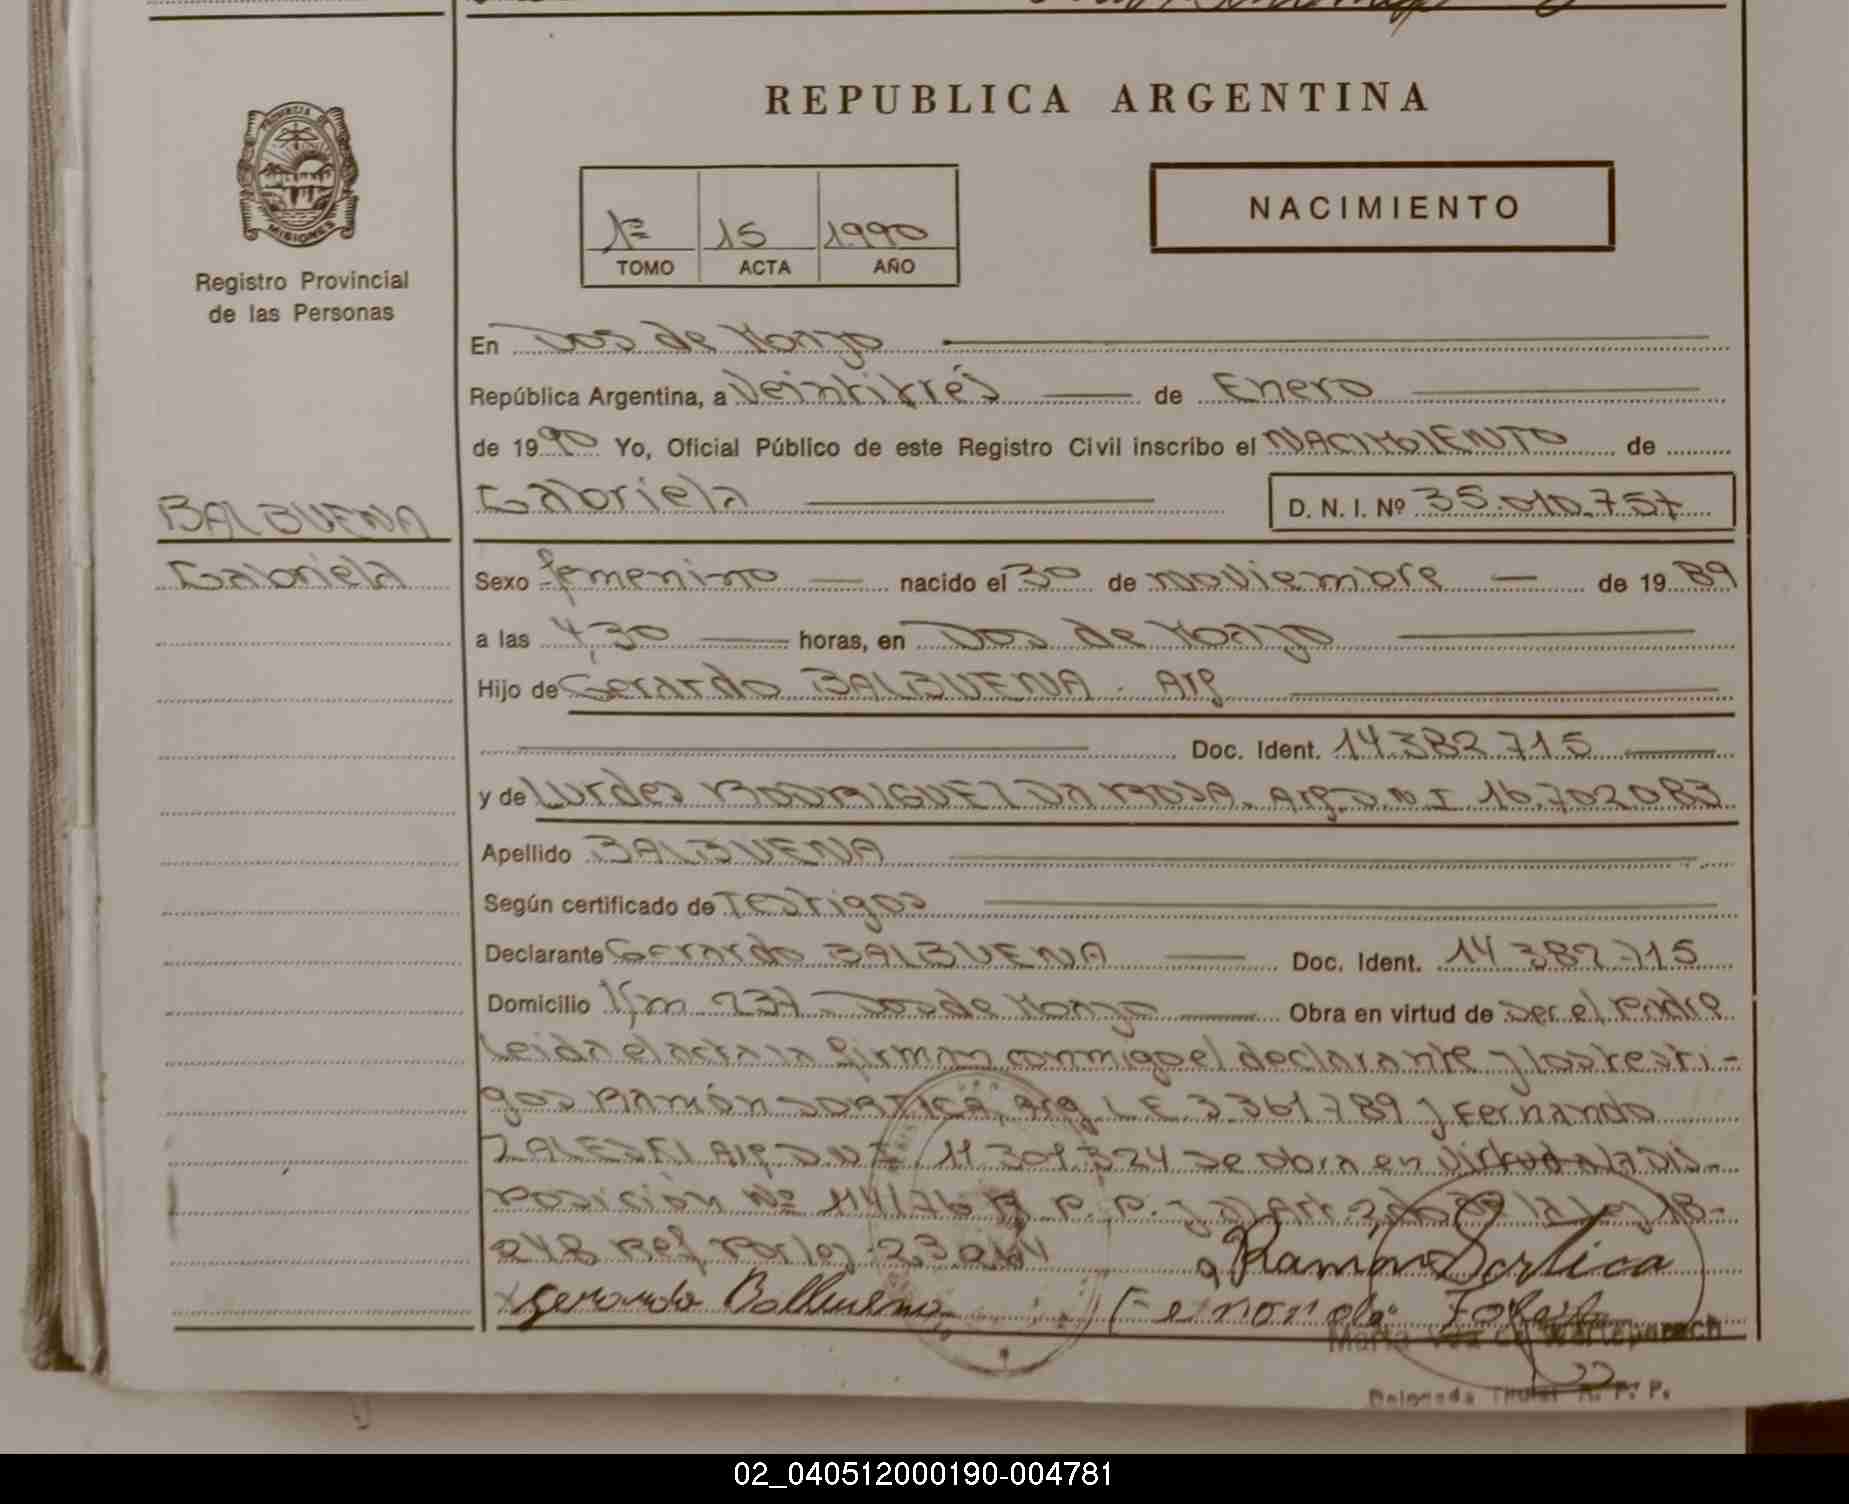 REPUBLICA ARGENTINA
PROVINCIA DE
MISIONES
Registro Provincial
de las Personas
1º 15 1990
TOMO ACTA AÑO
NACIMIENTO
En Dos de Mayo
República Argentina, a Veintitrés de Enero
de 1990 Yo, Oficial Público de este Registro Civil inscribo el NACIMIENTO de
BALBUENA
Gabriela
Gabriela D. N. I. Nº 35.010.757
Sexo femenino nacido el 30 de noviembre de 1989
a las 4,30 horas, en Dos de Mayo
Hijo de Gerardo BALBUENA. Arg
Doc. Ident. 14.382.715
y de Lurdes RODRIGUEZ DA ROSA. Arg. D.N.I 16.702.083
Apellido BALBUENA
Según certificado de Testigos
Declarante Gerardo BALBUENA Doc. Ident. 14.382.715
Domicilio 237 Dos de Mayo Obra en virtud de ser el Padre
Leida el acta la firman conmigo el declarante y los testi-
gos Ramón SORTICA, Arg L.E 3.361.789 y Fernando
ZALESKI Arg D.N.I 11.301.324 se obra en virtud a la Dis-
posición Nº 114/76 R.P.P. y al Art. 2do de la ley 18-
248 Ref por ley 23.264
Ramon Sortica
Gerardo Balbuena Fernando
Marta Vda de
Delegada Titular R. P. P.
02_040512000190-004781